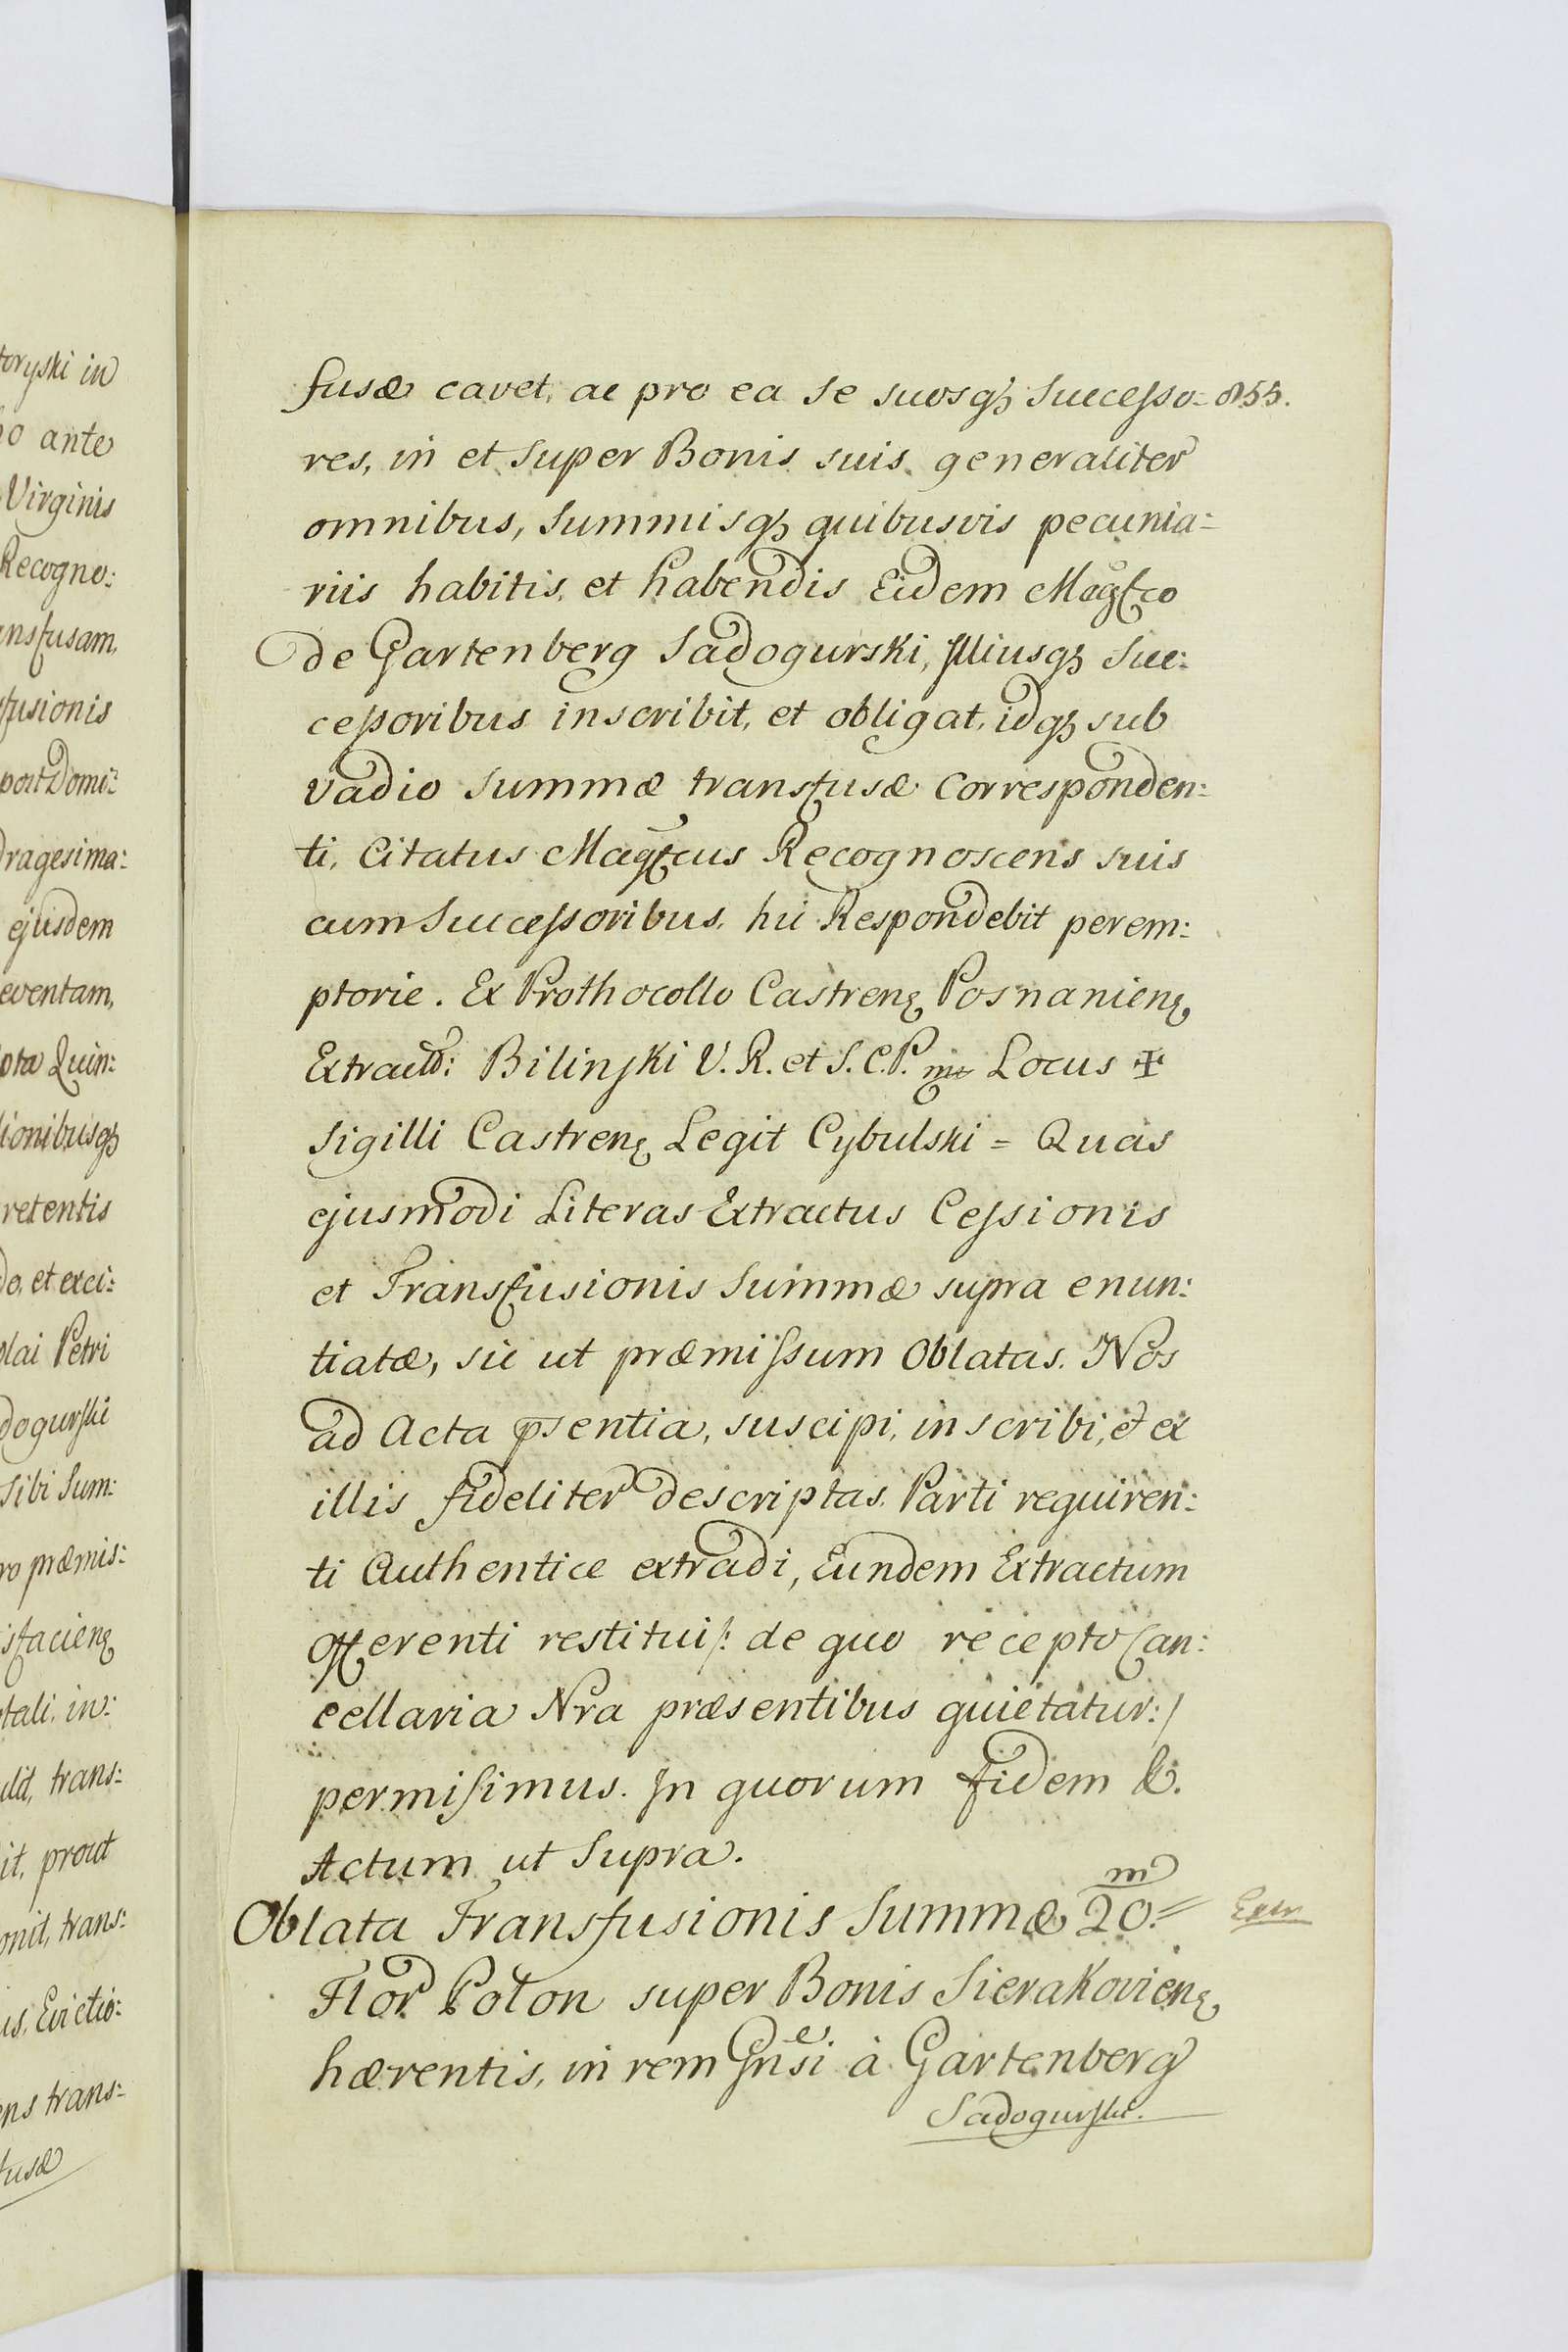 toryski in
ho ante
Virginis
Recogno:
ansfusam,
sfusionis
post Domi:
dragesima:
ejusdem
eventam,
ota Quin:
tionibusqȝ
retentis
do, et exci:
olai Petri
dogurski
sibi Sum:
ro præmis:
isfacienꝫ
tali, in:
ulit, trans:
it, prout
onit, trans:
is, Evictio:
ens trans:
fusæ
fusæ cavet, ac pro ea se suosqȝ Successo= 855.
res, in et super Bonis suis generaliter
omnibus, Summisqȝ quibusvis pecunia=
riis habitis, et habendis Eidem Magfco
de Gartenberg Sadogurski, Illiusqȝ Suc:
cessoribus inscribit, et obligat, idqȝ sub
vadio Summæ transfusæ corresponden:
ti, Citatus Magfcus Recognoscens suis
cum Successoribus, hic Respondebit perem:
ptorie. Ex Prothocollo Castrenꝫ Posnanienꝫ
Extractû: Bilinski V. R. et S. C. P. mp Locus ✠
Sigilli Castrenꝫ Legit Cybulski = Quas
ejusmodi Literas Extractus Cessionis
et Transfusionis Summæ supra enun:
tiatæ, sic ut præmissum Oblatas. Nos
ad Acta pꝛsentia, suscipi, inscribi, et ex
illis fideliter descriptas, Parti requiren:
ti Authentice extradi, Eundem Extractum
offerenti restitui /: de quo recepto Can:
cellaria Nra præsentibus quietatur :/
permisimus. In quorum fidem &.
Actum ut Supra.
Oblata Transfusionis Summæ 20.m=
Flor Polon super Bonis Sierakovienꝫ
hærentis, in rem Gnsi à Gartenberg
Sadogurski.